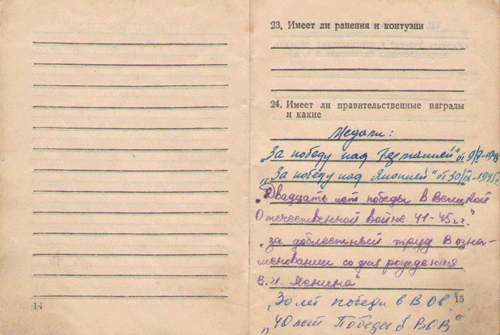 14
23. Имеет ли ранения и контузии
24. Имеет ли правительственные награды
и какие
Медали:
„За победу над Германией" от 9/V-1945
„За победу над Японией" от 30/IX-1945г.
„Двадцать лет победы в Великой
Отечественной войне 41-45гг."
„за доблестный труд В озна-
меновании со дня рождения
В.И. Ленина"
„30 лет победы в В О В"
15
„40 лет Победы в ВОВ"